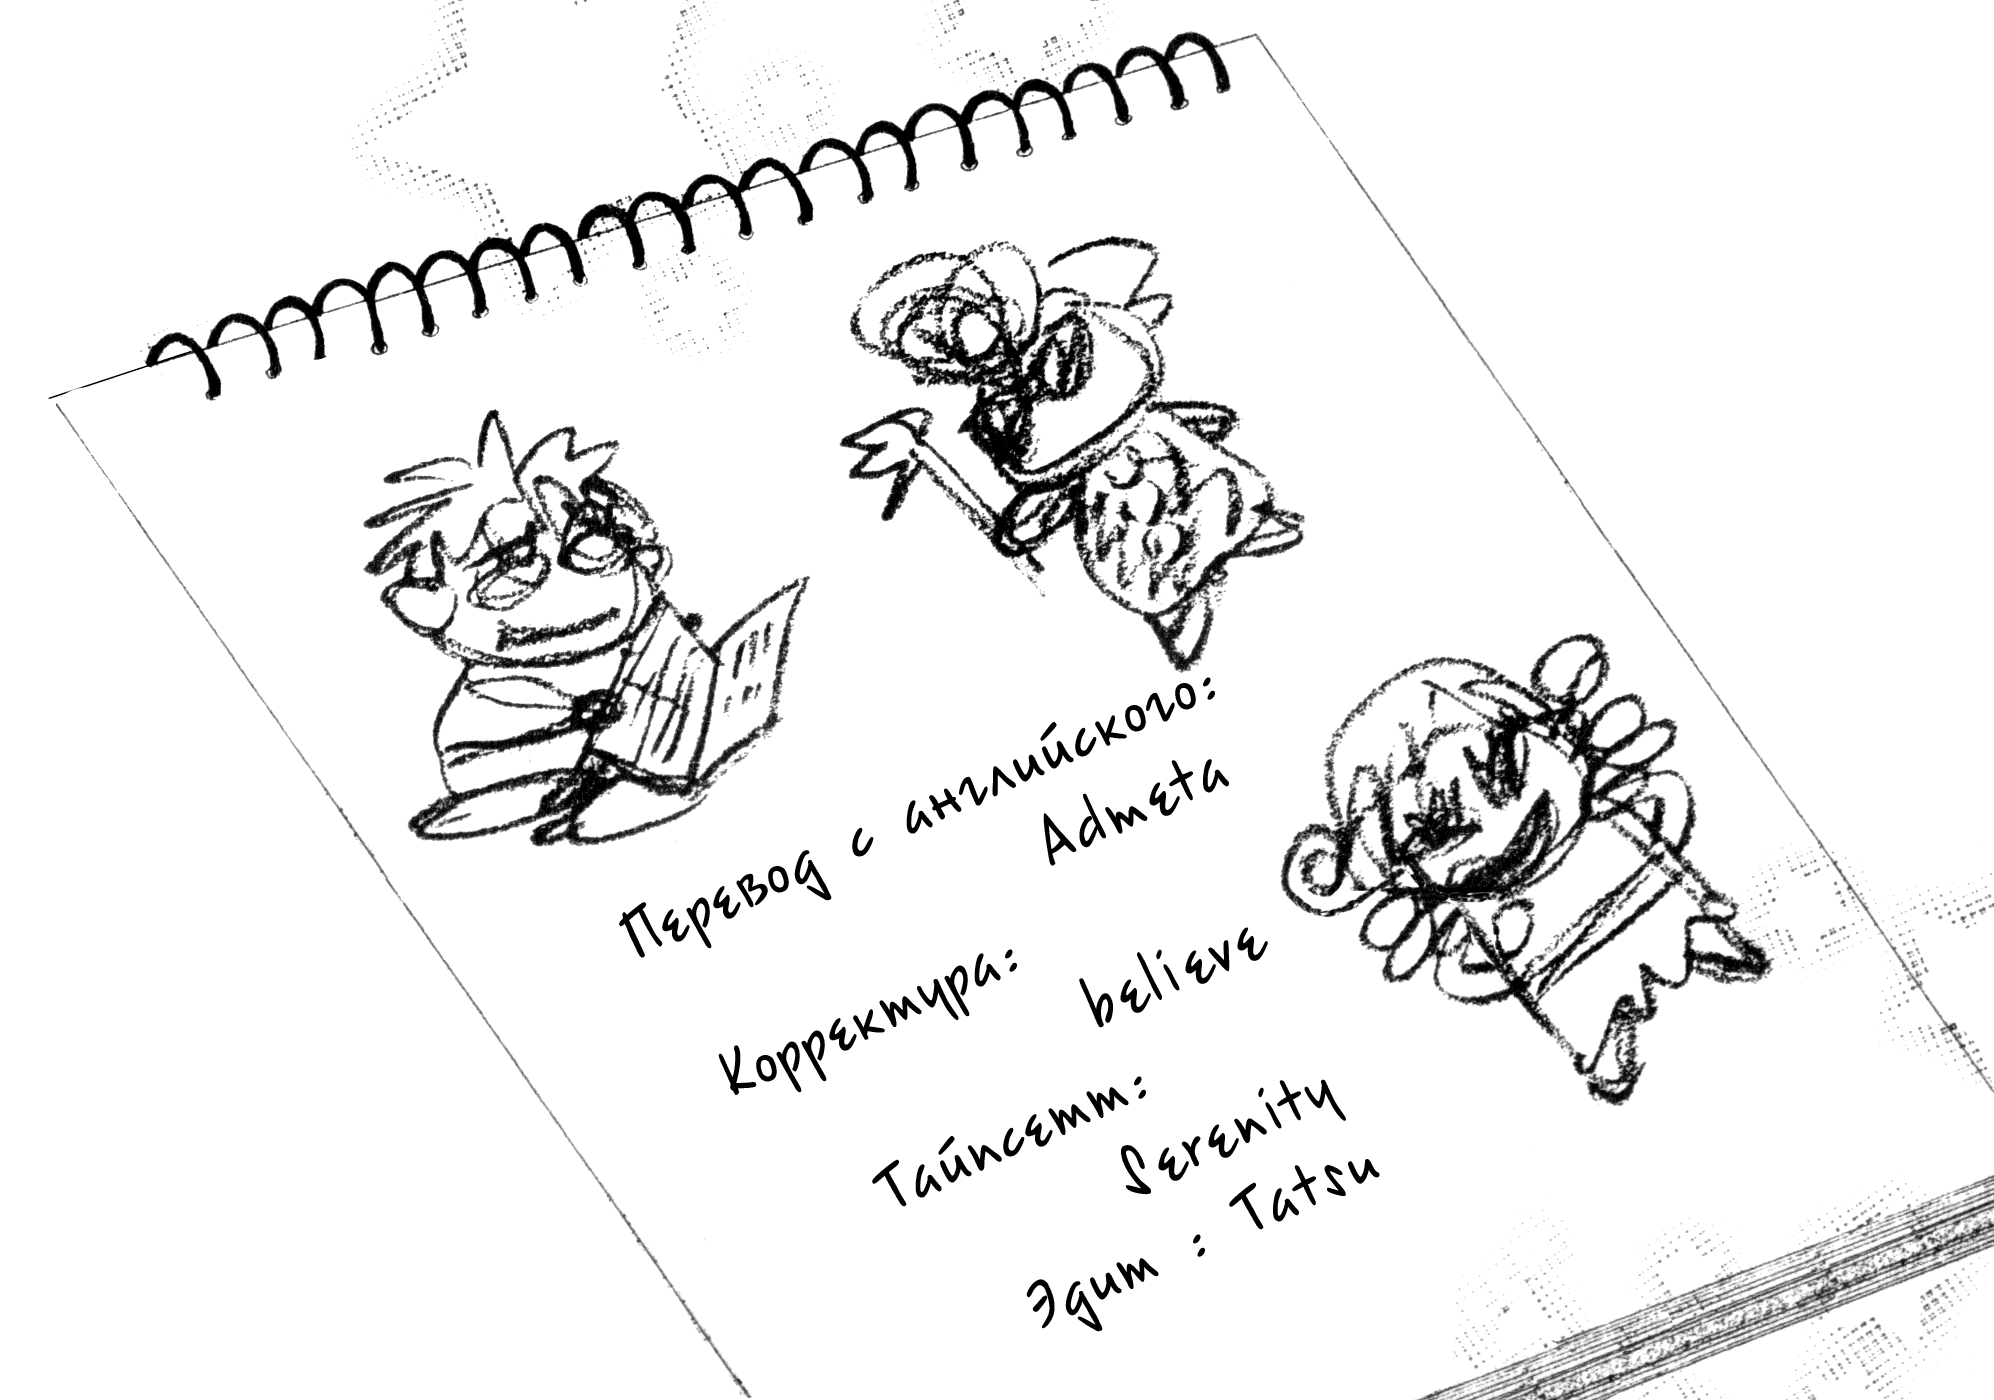 Перевод с английского:
Admeta
Корректура:
believe
Тайпсетт:
Serenity
Эдит : Tatsu